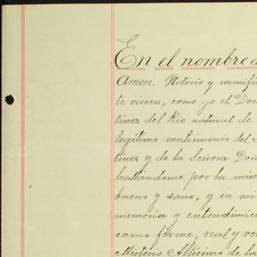 En el nombre d
Amen. Notorio y manifi
te vieren, como yo el Doc
tinez del Rio natural de
legitimo matrimonio del S
tinez y de la Señora Doñ
hallandome por la mise
bueno y sano, y en mi
memoria y entendimie
como firme, real y ve
Misterio Altisimo de la